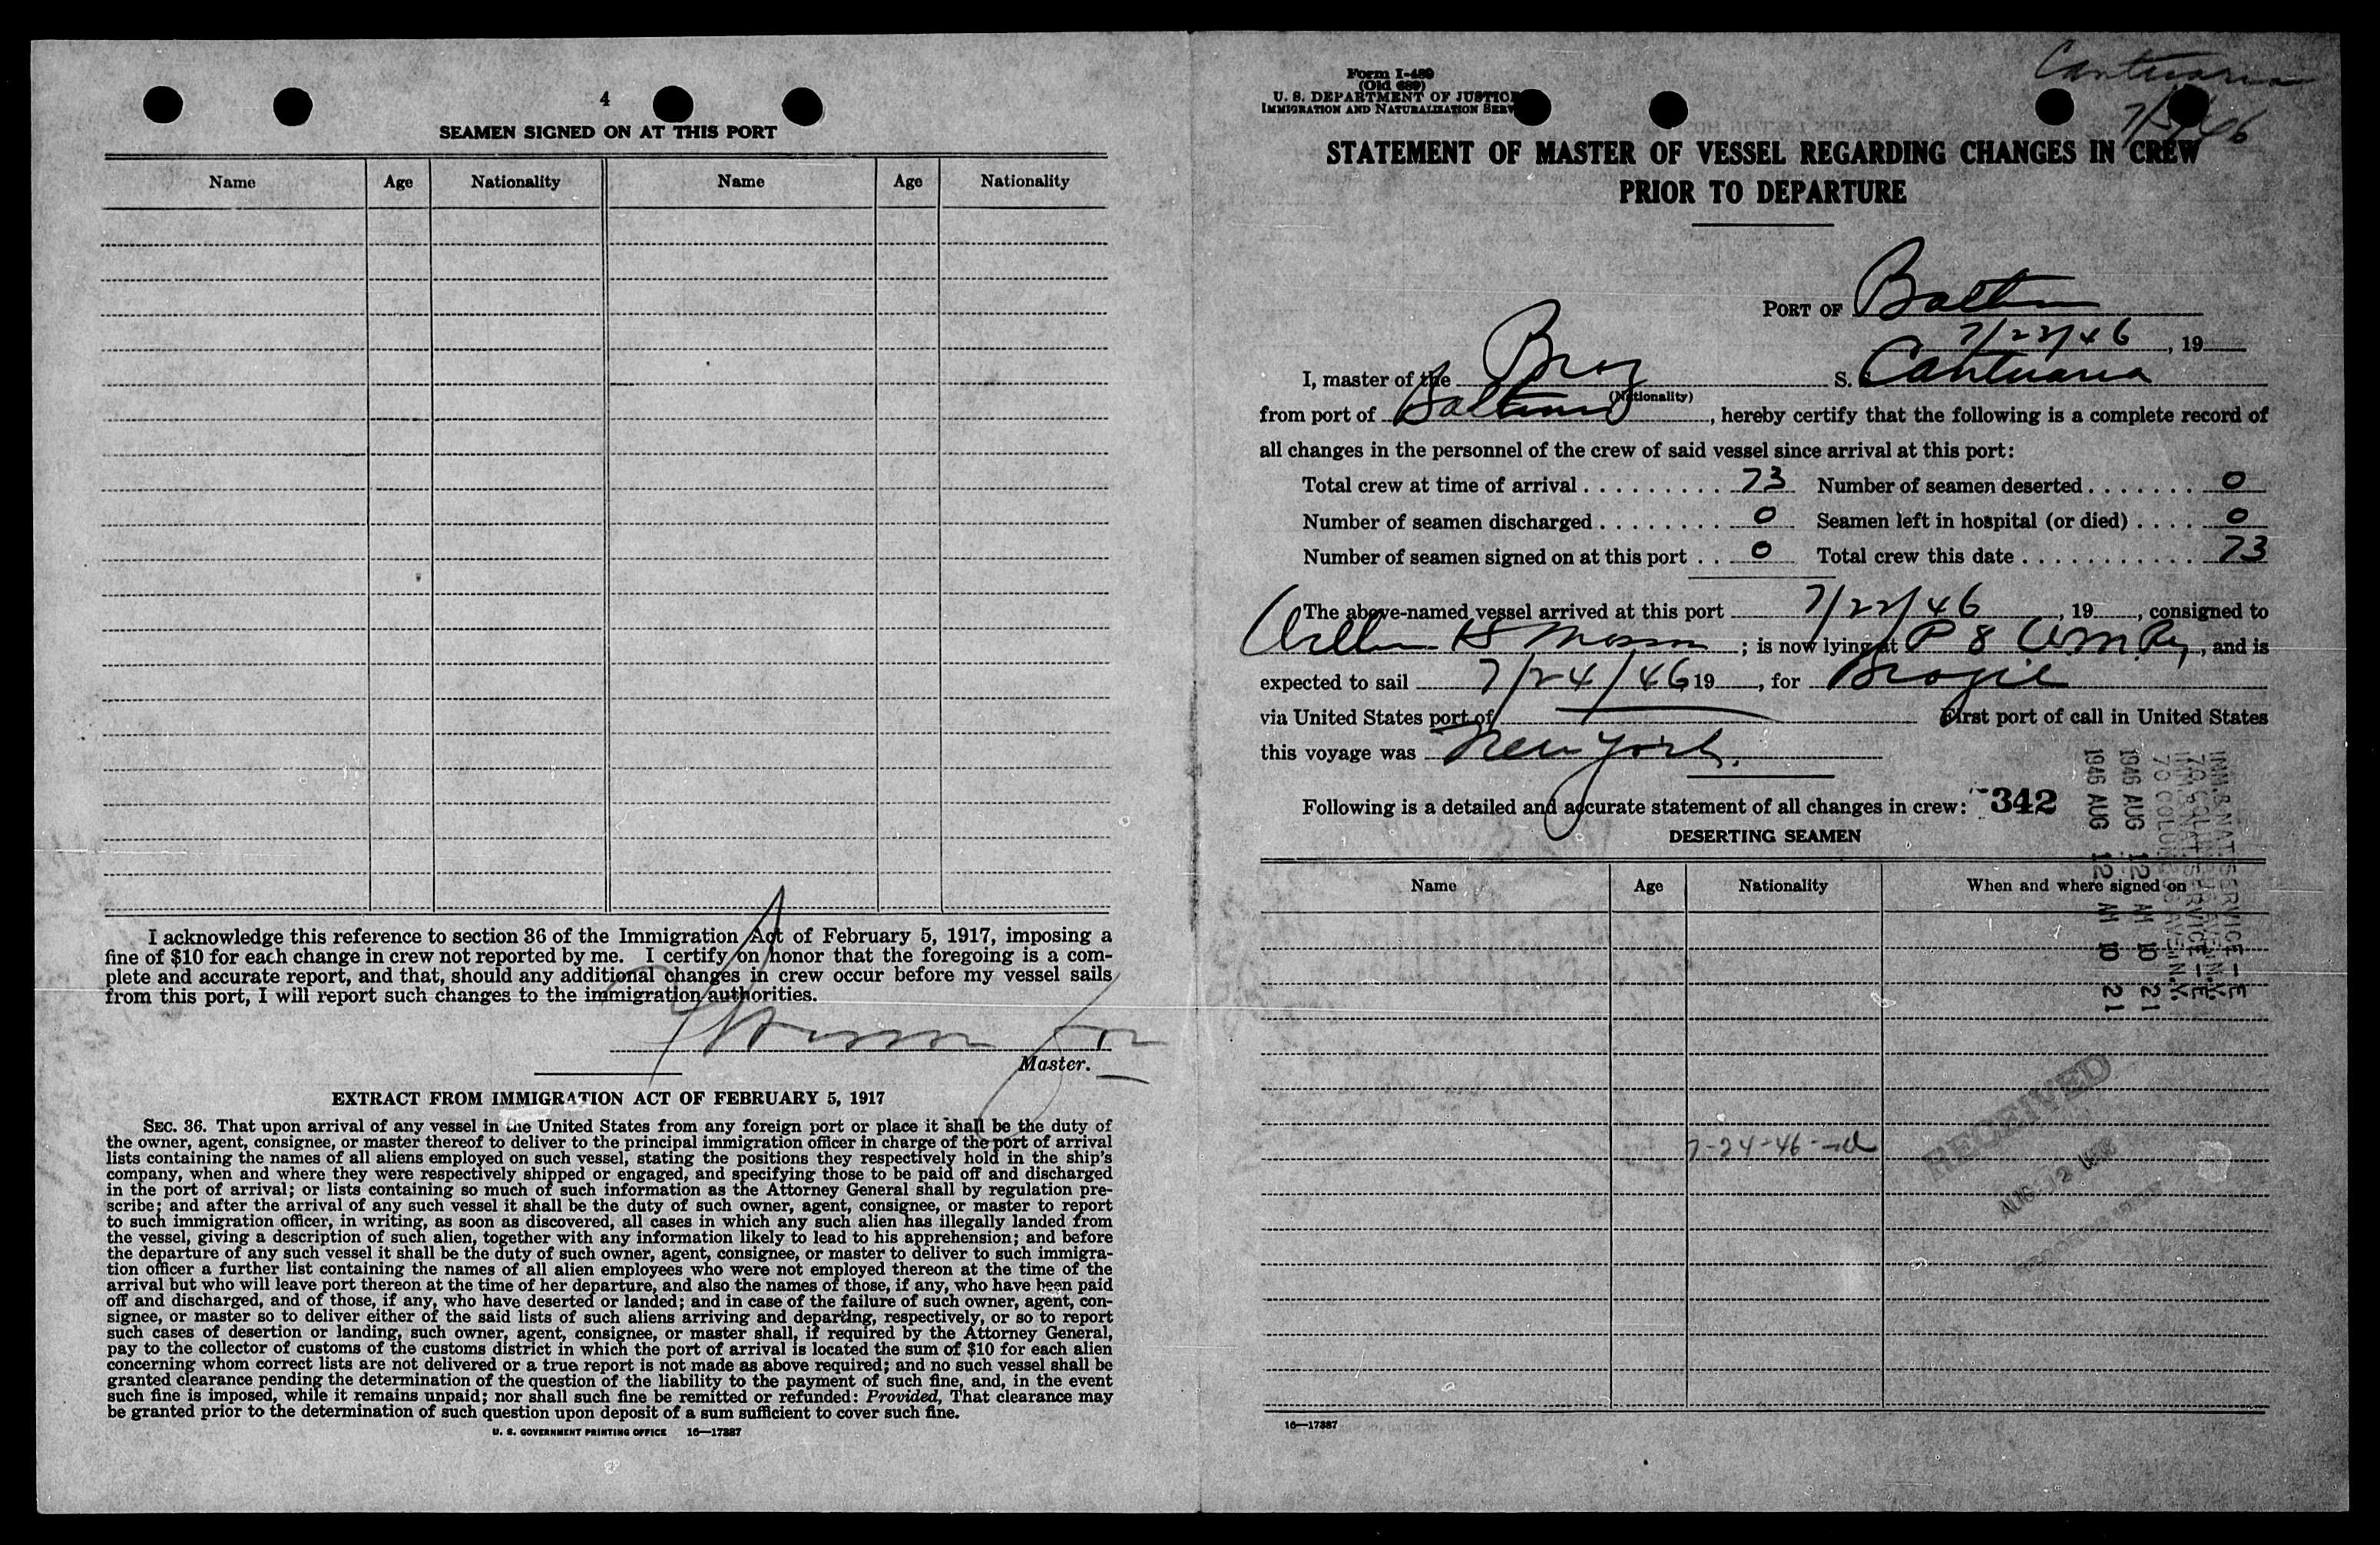 4
SEAMEN SIGNED ON AT THIS PORT
Name Age Nationality Name Age Nationality
I acknowledge this reference to section 36 of the Immigration Act of February 5, 1917, imposing a
fine of $10 for each change in crew not reported by me. I certify on honor that the foregoing is a com-
plete and accurate report, and that, should any additional changes in crew occur before my vessel sails
from this port, I will report such changes to the immigration authorities.
Master.
EXTRACT FROM IMMIGRATION ACT OF FEBRUARY 5, 1917
SEC. 36. That upon arrival of any vessel in the United States from any foreign port or place it shall be the duty of
the owner, agent, consignee, or master thereof to deliver to the principal immigration officer in charge of the port of arrival
lists containing the names of all aliens employed on such vessel, stating the positions they respectively hold in the ship's
company, when and where they were respectively shipped or engaged, and specifying those to be paid off and discharged
in the port of arrival; or lists containing so much of such information as the Attorney General shall by regulation pre-
scribe; and after the arrival of any such vessel it shall be the duty of such owner, agent, consignee, or master to report
to such immigration officer, in writing, as soon as discovered, all cases in which any such alien has illegally landed from
the vessel, giving a description of such alien, together with any information likely to lead to his apprehension; and before
the departure of any such vessel it shall be the duty of such owner, agent, consignee, or master to deliver to such immigra-
tion officer a further list containing the names of all alien employees who were not employed thereon at the time of the
arrival but who will leave port thereon at the time of her departure, and also the names of those, if any, who have been paid
off and discharged, and of those, if any, who have deserted or landed; and in case of the failure of such owner, agent, con-
signee, or master so to deliver either of the said lists of such aliens arriving and departing, respectively, or so to report
such cases of desertion or landing, such owner, agent, consignee, or master shall, if required by the Attorney General,
pay to the collector of customs of the customs district in which the port of arrival is located the sum of $10 for each alien
concerning whom correct lists are not delivered or a true report is not made as above required; and no such vessel shall be
granted clearance pending the determination of the question of the liability to the payment of such fine, and, in the event
such fine is imposed, while it remains unpaid; nor shall such fine be remitted or refunded: Provided, That clearance may
be granted prior to the determination of such question upon deposit of a sum sufficient to cover such fine.
U. S. GOVERNMENT PRINTING OFFICE 16—17387
Cantuaria
Form I-489
(Old 689)
U. S. DEPARTMENT OF JUSTICE
IMMIGRATION AND NATURALIZATION SERV
STATEMENT OF MASTER OF VESSEL REGARDING CHANGES IN CREW
PRIOR TO DEPARTURE
PORT OF Baltim
7/22/46, 19
I, master of the Braz S. S. Cantuaria
(Nationality)
from port of Baltimore, hereby certify that the following is a complete record of
all changes in the personnel of the crew of said vessel since arrival at this port:
Total crew at time of arrival 73 Number of seamen deserted 0
Number of seamen discharged 0 Seamen left in hospital (or died) 0
Number of seamen signed on at this port 0 Total crew this date 73
The above-named vessel arrived at this port 7/22/46, 19, consigned to
; is now lying at P 8, and is
expected to sail 7/24/46 19, for Brazil
via United States port of — First port of call in United States
this voyage was New York.
Following is a detailed and accurate statement of all changes in crew: 342
DESERTING SEAMEN
Name Age Nationality When and where signed on
1946 AUG 12 AM 10 21
1946 AUG 12 AM 10 21
7-24-46
RECEIVED
AUG 12 1946
16—17387